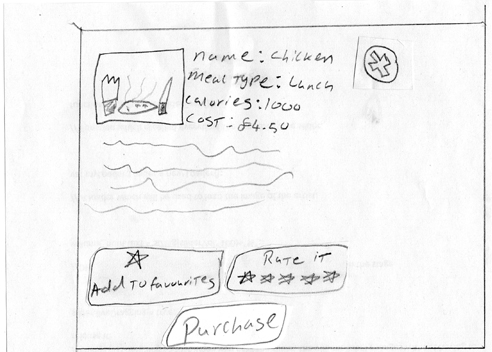 name: Chicken
Meal Type: Lunch
Calories: 1000
Cost: £4.50
Add To favourites
Rate it
Purchase